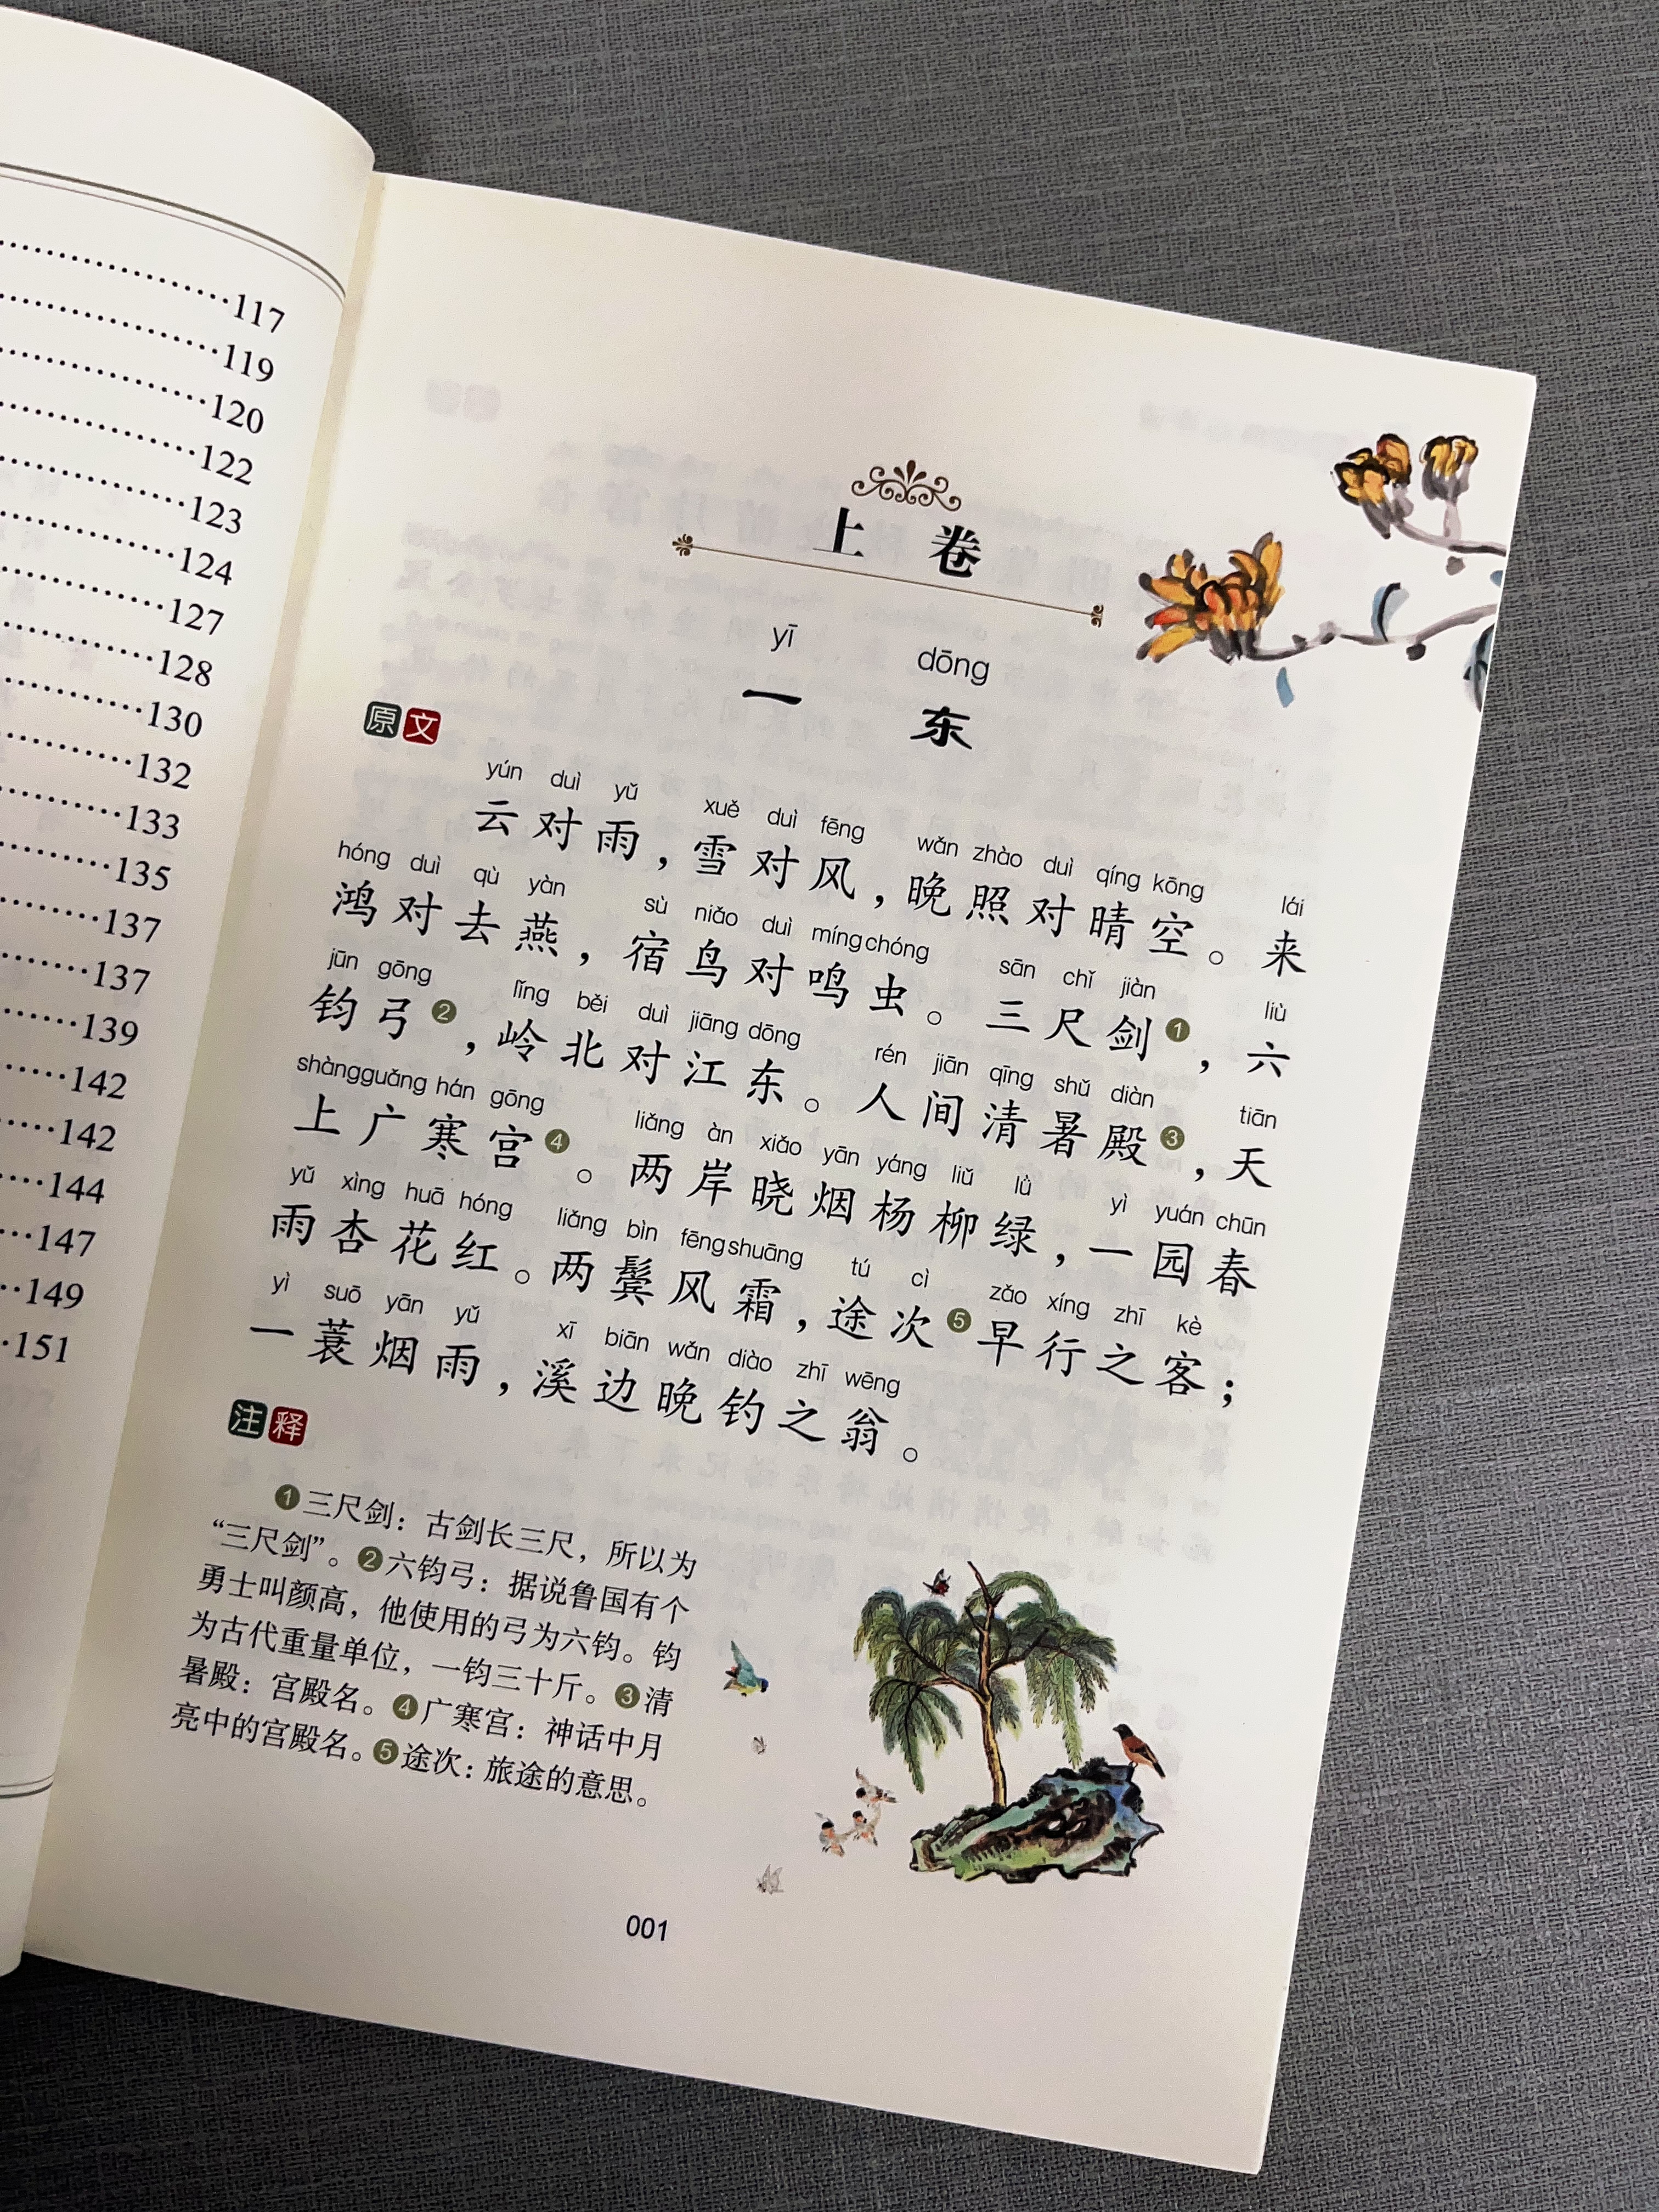 117
119
120
122
123
124
127
128
130
132
133
135
137
137
139
142
142
144
147
149
151
上卷
yī dōng
一 东
原文
yún duì yǔ xuě duì fēng wǎn zhào duì qíng kōng lái
云对雨，雪对风，晚照对晴空。来
hóng duì qù yàn sù niǎo duì míng chóng sān chǐ jiàn liù
鸿对去燕，宿鸟对鸣虫。三尺剑❶，六
jūn gōng lǐng běi duì jiāng dōng rén jiān qīng shǔ diàn tiān
钧弓❷，岭北对江东。人间清暑殿❸，天
shàng guǎng hán gōng liǎng àn xiǎo yān yáng liǔ lǜ yì yuán chūn
上广寒宫❹。两岸晓烟杨柳绿，一园春
yǔ xìng huā hóng liǎng bìn fēng shuāng tú cì zǎo xíng zhī kè
雨杏花红。两鬓风霜，途次❺早行之客；
yì suō yān yǔ xī biān wǎn diào zhī wēng
一蓑烟雨，溪边晚钓之翁。
注释
❶三尺剑：古剑长三尺，所以为
“三尺剑”。❷六钧弓：据说鲁国有个
勇士叫颜高，他使用的弓为六钧。钧
为古代重量单位，一钧三十斤。❸清
暑殿：宫殿名。❹广寒宫：神话中月
亮中的宫殿名。❺途次：旅途的意思。
001